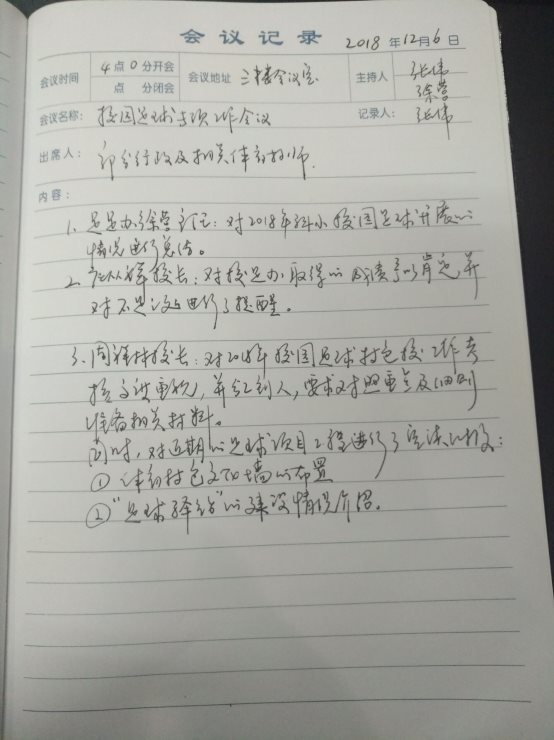 会议记录 2018年12月6日
会议时间 4点0分开会 会议地址 三楼会议室 主持人 张伟
点 分闭会 徐莹
会议名称: 校园足球专项工作会议 记录人: 张伟
出席人: 部分行政及相关体育教师.
内容:
1. 足足办徐莹主任: 对2018年科小校园足球开展的
情况进行总结。
2. 校长: 对校足办取得的成绩予以肯定并
对不足之处进行了提醒。
3. 周 校长: 对2018年校园足球 校工作考
核 , 并分工到人, 要求对照重点及细则
准备相关材料。
同时, 对近期的足球项目工程进行了 :
① 文化墙的布置
② "足球驿站"的建设情况介绍。